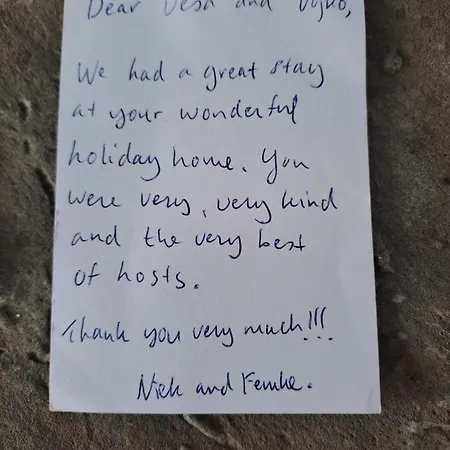 Dear Vesa and Vojko,
We had a great stay
at your wonderful
holiday home. You
were very, very kind
and the very best
of hosts.
Thank you very much!!!
Niek and Femke.